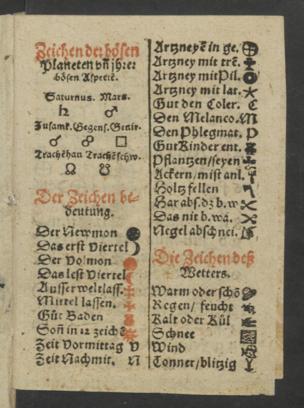 Zeichen der bösen
Planeten vñ jhrer
bösen Aspectē.
Saturnus. Mars.
♄ ♂
Zusamk. Gegens. Gevir.
☌ ☍ □
Trachēhau Trachēschw.
☊ ☋
Der Zeichen be-
deutung.
Der Newmon
Das erst Viertel
Der Volmon
Das lest Viertel
Ausser weltlass.
Mittel lassen.
Gůt Baden
Soñ in 12 zeichē
Zeit Vormittag V
Zeit Nachmit. N
Artzney ē in ge.
Artzney mit trē.
Artzney mit Pil.
Artzney mit lat.
Gut den Coler. C
Den Melanco. M
Den Phlegmat. P
Gut Kinder ent.
Pflantzen/seyen
Ackern/mist anl.
Holtz fellen
Har abs. dz b. w
Das nit b. wa.
Negel abschnei.
Die Zeichen deß
Wetters.
Warm oder schö
Regen/ feucht
Kalt oder Kül
Schnee
Wind
Tonner/blitzig